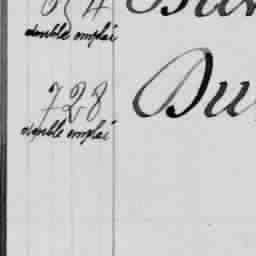 double emploi
728 Du
double emploi